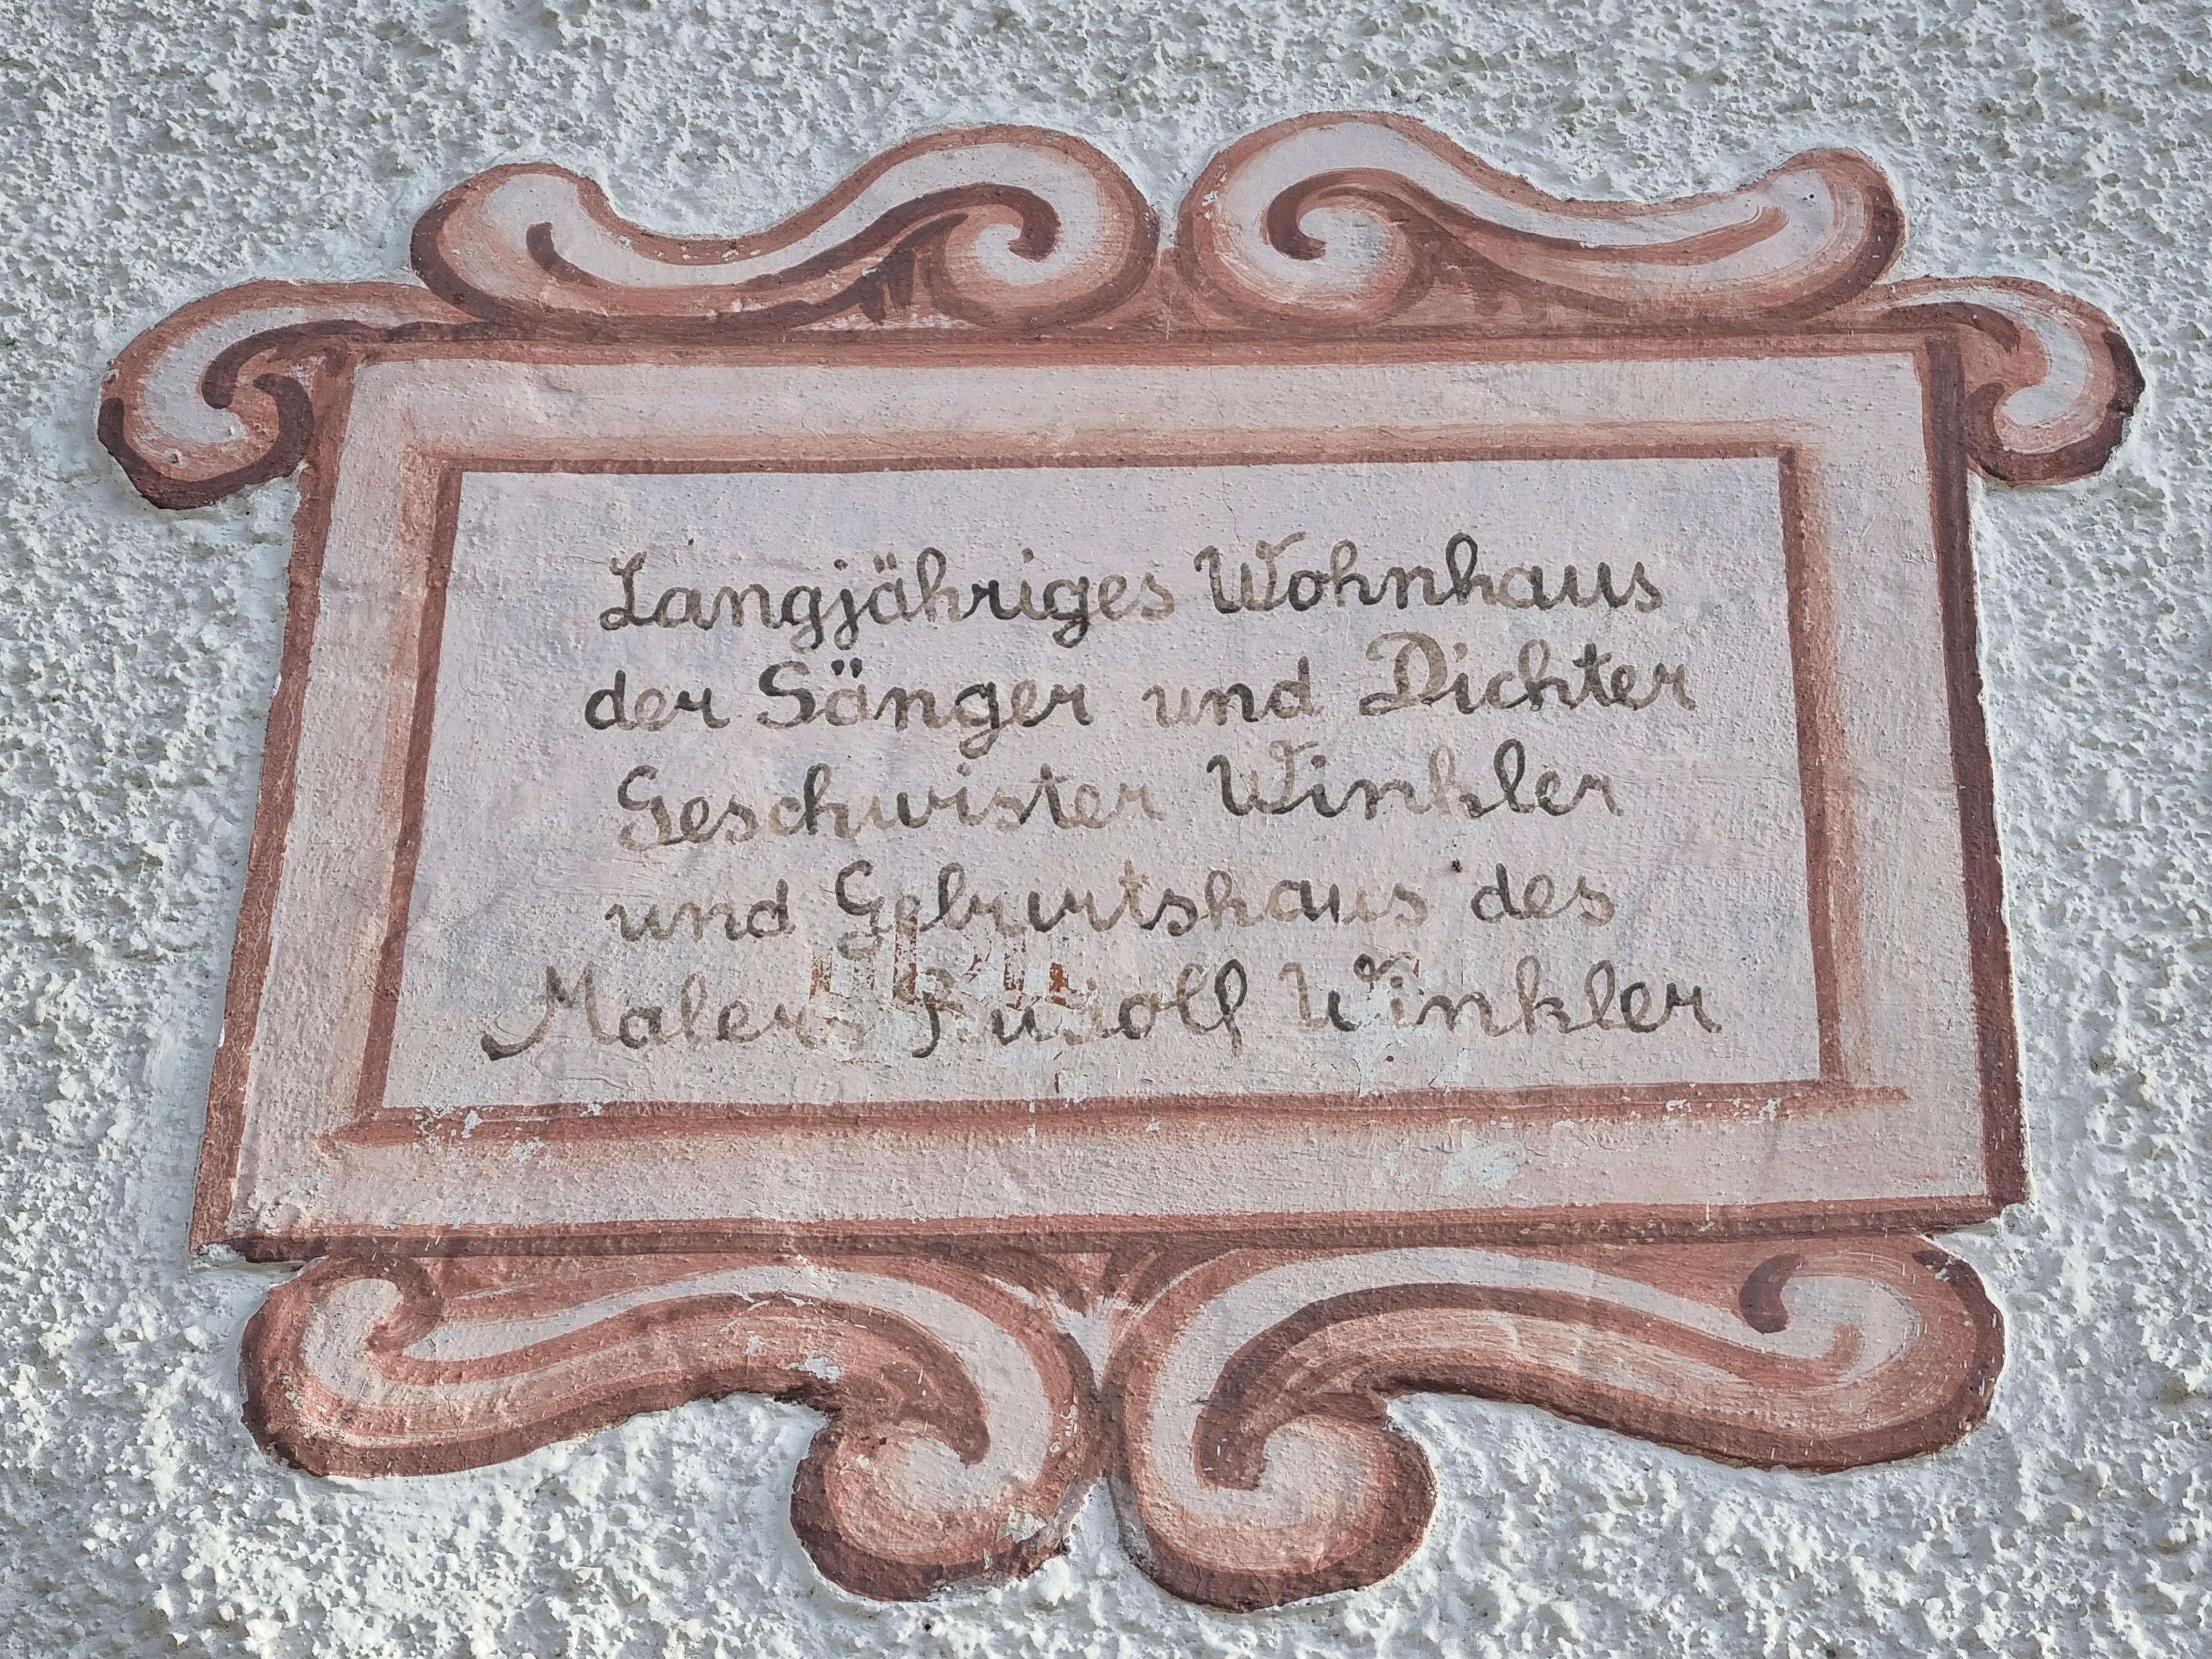 Langjähriges Wohnhaus
der Sänger und Dichter
Geschwister Winkler
und Geburtshaus des
Malers Rudolf Winkler